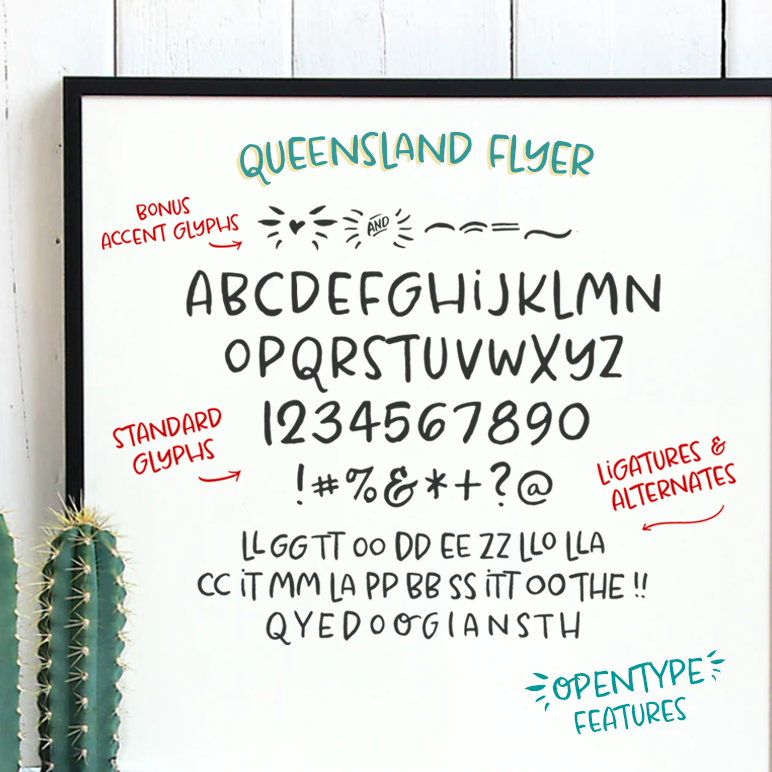 QUEENSLAND FLYER
BONUS
ACCENT GLYPHS
AND
ABCDEFGHiJKLMN
OPQRSTUVWXYZ
1234567890
STANDARD
GLYPHS
!#%&*+?@
LiGATURES &
ALTERNATES
LL GG TT OO DD EE ZZ LLO LLA
CC iT MM LA PP BB SS iTT OO THE !!
QYEDOOGIANSTH
OPENTYPE
FEATURES